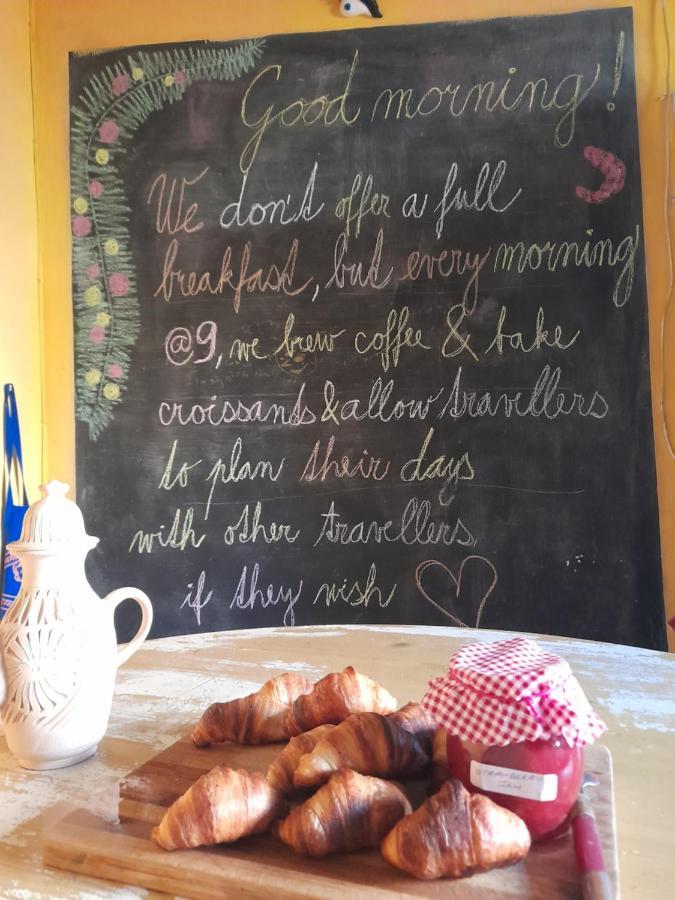 Good morning!
We don't offer a full
breakfast, but every morning
@9, we brew coffee & bake
croissants & allow travellers
to plan their days
with other travellers,
if they wish
STRAWBERRY
JAM